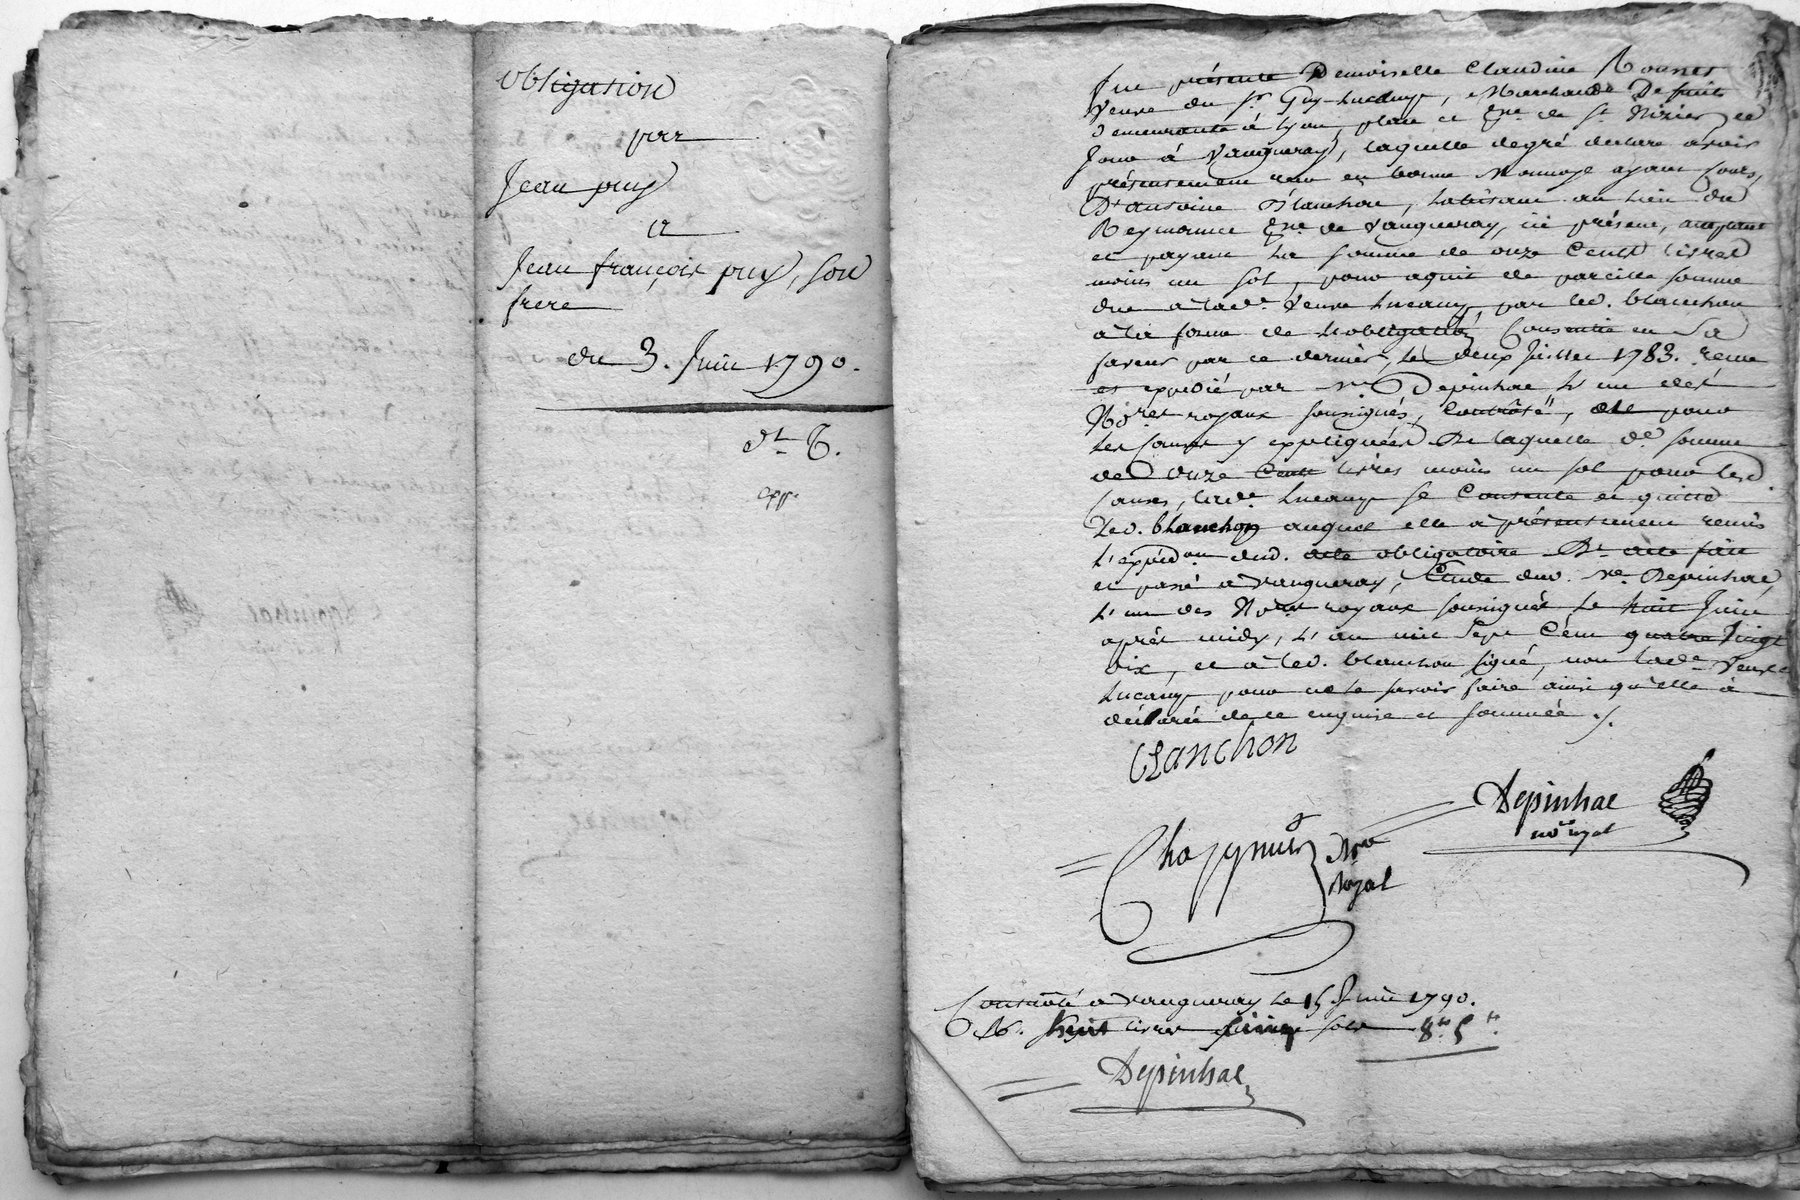 obligation
par
Jean puy
et
Jean françois puy, son
frere
du 3. Juin 1790.
expe.
fut présente Demoiselle Claudine
veuve du sr. Guy Lucamp, Marchande De fruits
demeurante à Lyon, place et psse. de st Nizier, ce
jour à vaugneray, laquelle degré declare avoir
présentement reçu en bonne Monnoye ayant cours,
D'antoine Blanchon, habitant au lieu du
psse. de vaugneray, ici présent, acceptant
et payant La somme de onze Cents livres
moins un sol, pour aquit de pareille somme
due à lade. veuve Lucamp, par led. blanchon
à la forme de L'obligation Consentie en Sa
faveur par ce dernier, le deux Juillet 1783. reçue
et expedié par me. Depinhac L'un des
Nores. royaux soussignés, Controlé, et pour
les Causes y expliquées De laquelle de. somme
de onze Cents livres moins un sol pour lesd.
Causes, lade. Lucamp se Contente et quitte
Led. blanchon auquel elle a présentement remis
L'expédon. dud. acte obligatoire Dt. acte fait
et passé a vaugneray, Etude dud. me. Depinhac,
L'un des Nores royaux soussignés Le huit Juin
après midy, L'an mil Sept Cent quatre Vingt
dix, et a led. blanchon signé, non lade. Veuve
Lucamp pour ne le savoir faire ainsi qu'elle à
déclaré de ce enquise et sommée ./.
bLanchon
Depinhac
nore. royal
Nre
Royal
Controlé a vaugneray Le 15 Juin 1790.
R. huit livres cinq sols 8lt 5s.
Depinhac